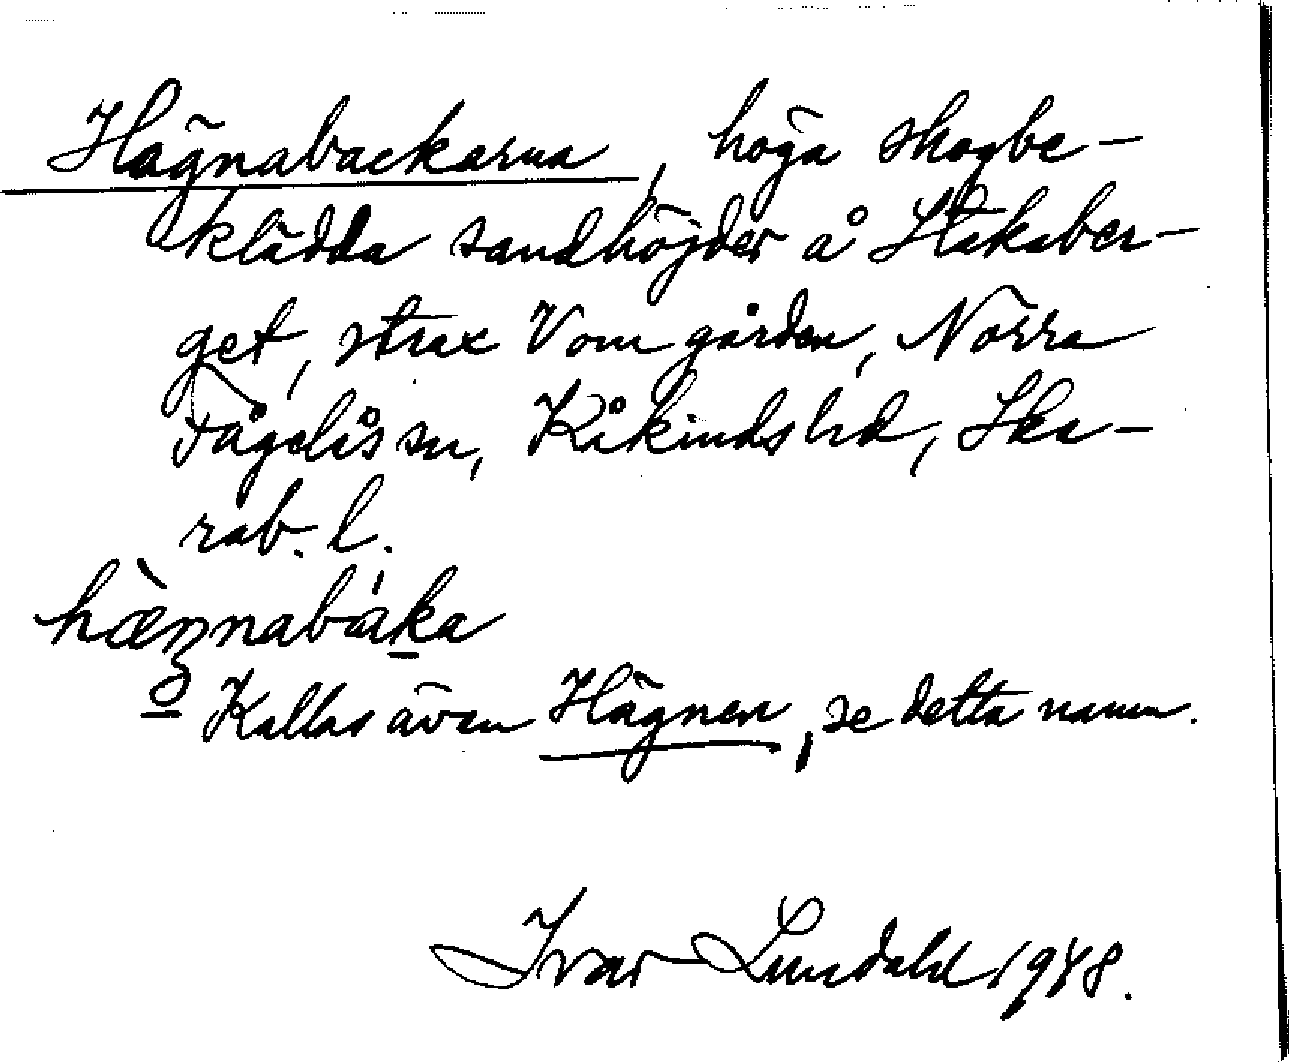 Hägnabackarna, höga skogbe-
klädda sandhöjder å Stakaber-
get, strax V om gården, Norra
Fågelås sn, Kåkinds hd, Ska-
rab. l.
Kallas även Hägnen, se detta namn.
Ivar Lundahl 1948.